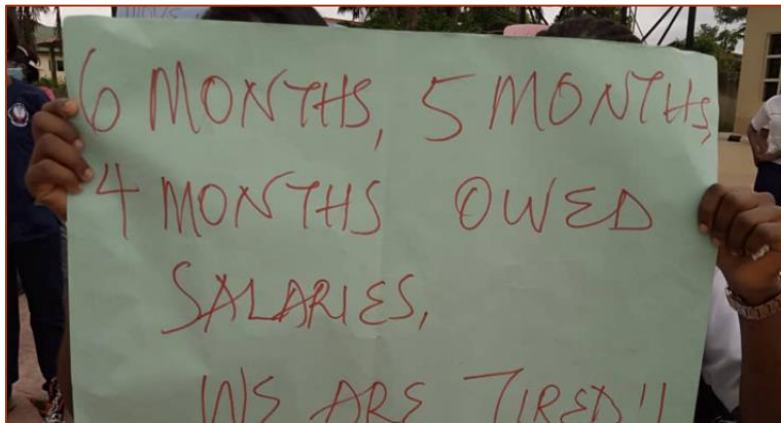 6 MONTHS, 5 MONTHS,
4 MONTHS OWED
SALARIES,
WE ARE TIRED!!